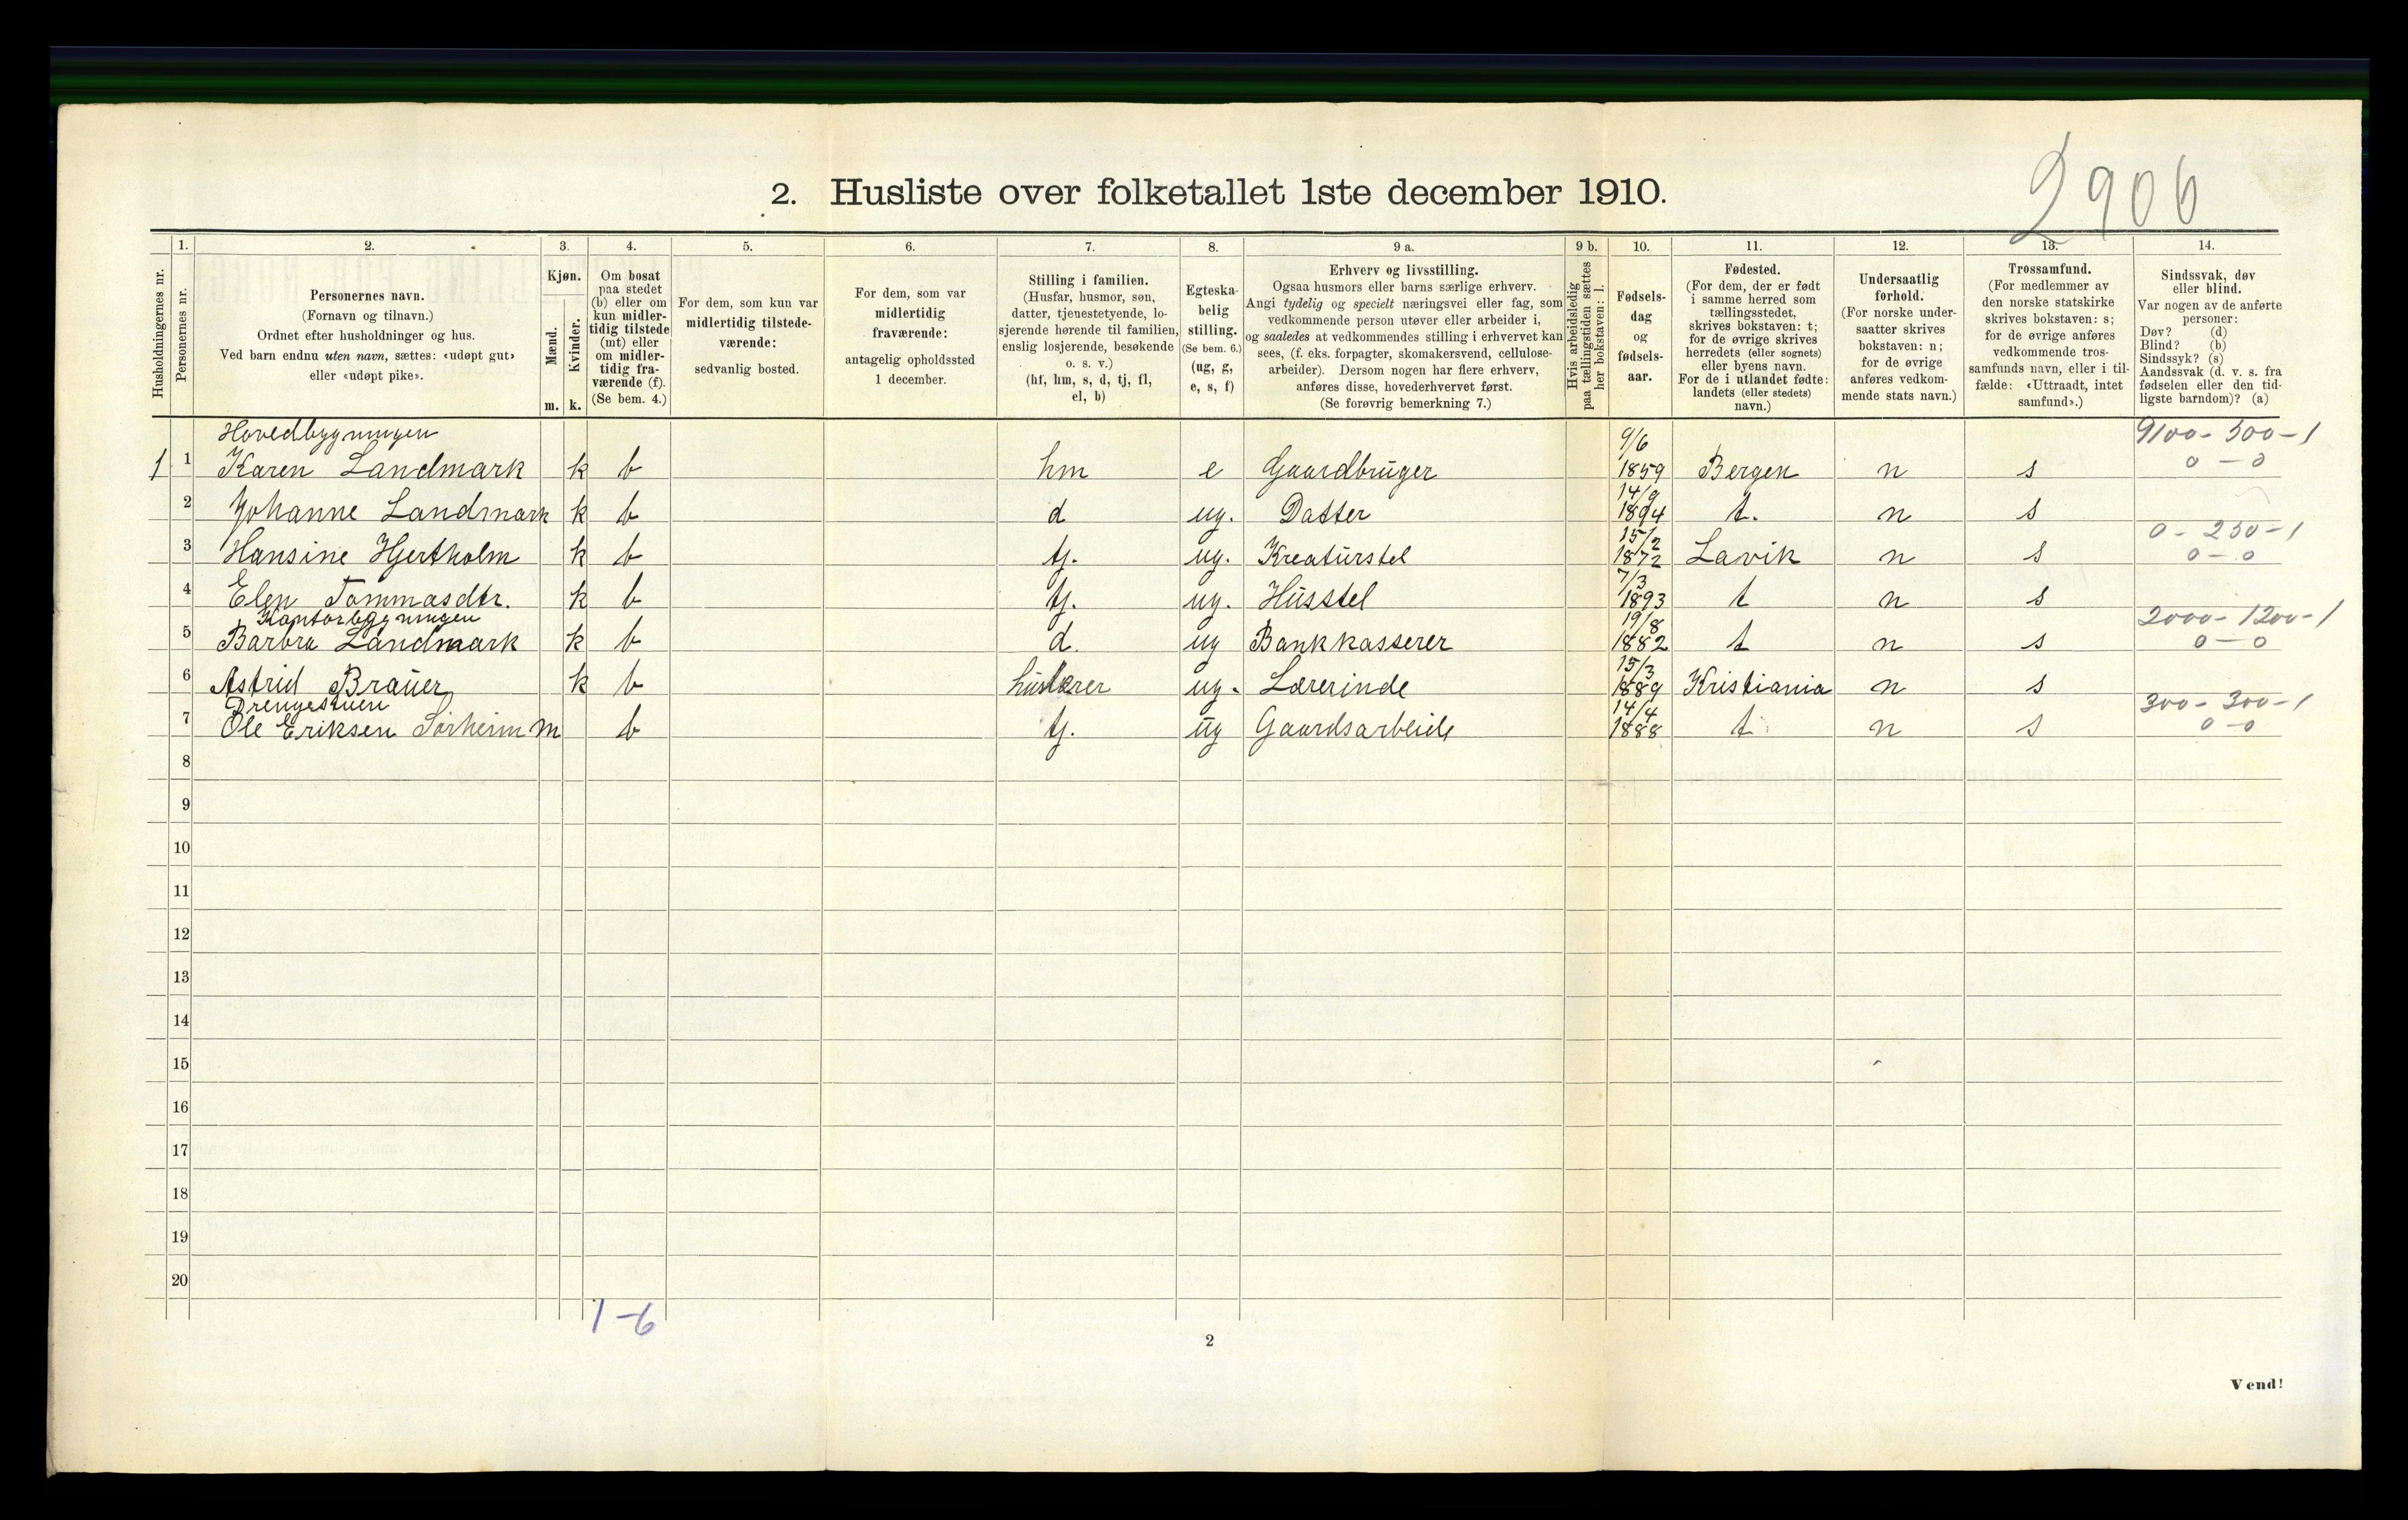 2906
2. Husliste over folketallet 1ste december 1910.
Husholdningernes nr.
1.
Personernes nr.
2.
Personernes navn.
(Fornavn og tilnavn.)
Ordnet efter husholdninger og hus.
Ved barn endnu uten navn, sættes: «udøpt gut»
eller «udøpt pike».
3.
Kjøn.
Mænd.
Kvinder.
m. k.
4.
Om bosat
paa stedet
(b) eller om
kun midler-
tidig tilstede
(mt) eller
om midler-
tidig fra-
værende (f).
(Se bem. 4.)
5.
For dem, som kun var
midlertidig tilstede-
værende:
sedvanlig bosted.
6.
For dem, som var
midlertidig
fraværende:
antagelig opholdssted
1 december.
7.
Stilling i familien.
(Husfar, husmor, søn,
datter, tjenestetyende, lo-
sjerende hørende til familien,
enslig losjerende, besøkende
o. s. v.)
(hf, hm, s, d, tj, fl,
el, b)
8.
Egteska-
belig
stilling.
(Se bem. 6.)
(ug, g,
e, s, f)
9 a.
Erhverv og livsstilling.
Ogsaa husmors eller barns særlige erhverv.
Angi tydelig og specielt næringsvei eller fag, som
vedkommende person utøver eller arbeider i,
og saaledes at vedkommendes stilling i erhvervet kan
sees, (f. eks. forpagter, skomakersvend, cellulose-
arbeider). Dersom nogen har flere erhverv,
anføres disse, hovederhvervet først.
(Se forøvrig bemerkning 7.)
9 b.
Hvis arbeidsledig
paa tællingstiden sættes
her bokstaven: l.
10.
Fødsels-
dag
og
fødsels-
aar.
11.
Fødested.
(For dem, der er født
i samme herred som
tællingsstedet,
skrives bokstaven: t;
for de øvrige skrives
herredets (eller sognets)
eller byens navn.
For de i utlandet fødte:
landets (eller stedets)
navn.)
12.
Undersaatlig
forhold.
(For norske under-
saatter skrives
bokstaven: n;
for de øvrige
anføres vedkom-
mende stats navn.)
13.
Trossamfund.
(For medlemmer av
den norske statskirke
skrives bokstaven: s;
for de øvrige anføres
vedkommende tros-
samfunds navn, eller i til-
fælde: «Uttraadt, intet
samfund».)
14.
Sindssvak, døv
eller blind.
Var nogen av de anførte
personer:
Døv? (d)
Blind? (b)
Sindssyk? (s)
Aandssvak (d. v. s. fra
fødselen eller den tid-
ligste barndom)? (a)
Hovedbygningen 9/6 9100 - 500 - 1
1 1 Karen Landmark k b hm e Gaardbruger 1859 Bergen n s 0 - 0
14/9
2 Johanne Landmark k b d ug. Datter 1894 t. n s
15/2 0 - 250 - 1
3 Hansine Hjertholm k b tj. ug. Kreaturstel 1872 Lavik n s 0 - 0
7/3
4 Elen Tommasdtr. k b tj. ug. Husstel 1893 t n s
Kontorbygningen 19/8 2000 - 1200 - 1
5 Barbra Landmark k b d. ug Bankkasserer 1882 t n s 0 - 0
15/3
6 Astrid Brauer k b huslærer ug. Lærerinde 1889 Kristiania n s
Drengestuen 14/4 300 - 300 - 1
7 Ole Eriksen Sørheim m b tj. ug Gaardsarbeide 1888 t n s 0 - 0
8
9
10
11
12
13
14
15
16
17
18
19
20
1-6
2
Vend!